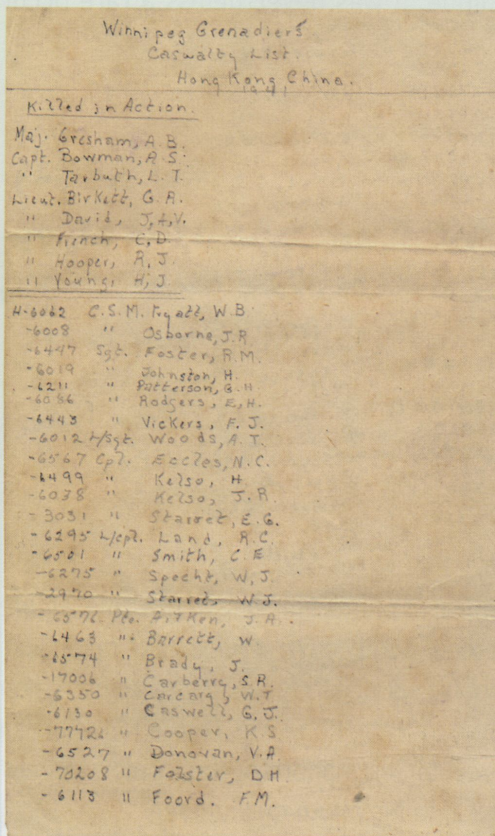 Winnipeg Grenadiers
Casualty List.
Hong Kong, China.
1941
Killed in Action.
Maj. Gresham, A B.
Capt. Bowman, A S.
" Tarbuth, L. T.
Lieut. Birkett, G. A.
" David, J, A, V.
" French, C, D.
" Hooper, R, J.
" Young, H, J.
H-6062 C. S. M. W. B.
-6008 " Osborne, J. R
-6447 Sgt. Foster, R. M.
-6019 " Johnston, H.
-6211 " Patterson, G. H
-6086 " Rodgers, E, H.
-6443 " Vickers, F. J.
-6012 L/Sgt. Woods, A. T.
-6567 Cpl. Eccles, N. C.
-6499 " Kelso, H
-6038 " Kelso, J. R
-3031 " Starret, E. G.
-6295 L/cpl. Land, R. C.
-6501 " Smith, C. E
-6275 " Specht, W, J.
-2970 " Starret, W. J.
-6576 Pte. Aitken, J. A.
-6463 " Barrett, W.
-6574 " Brady, J.
-17006 " Carberry, S. R.
-6350 " W. T
-6130 " Caswell, G, J.
-77726 " Cooper, K S
-6527 " Donovan, V. A.
-70208 " Folster, D H
-6113 " Foord. F. M.